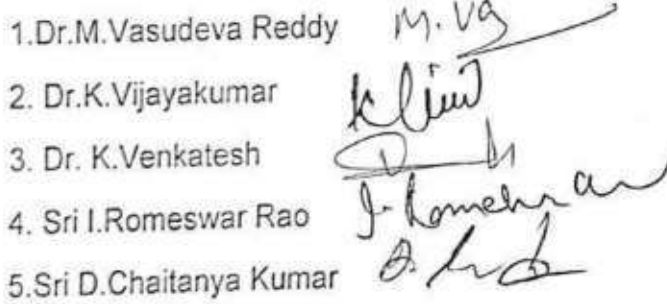 1.Dr.M.Vasudeva Reddy M.Va
2. Dr.K.Vijayakumar
3. Dr. K.Venkatesh
4. Sri I.Romeswar Rao
5.Sri D.Chaitanya Kumar